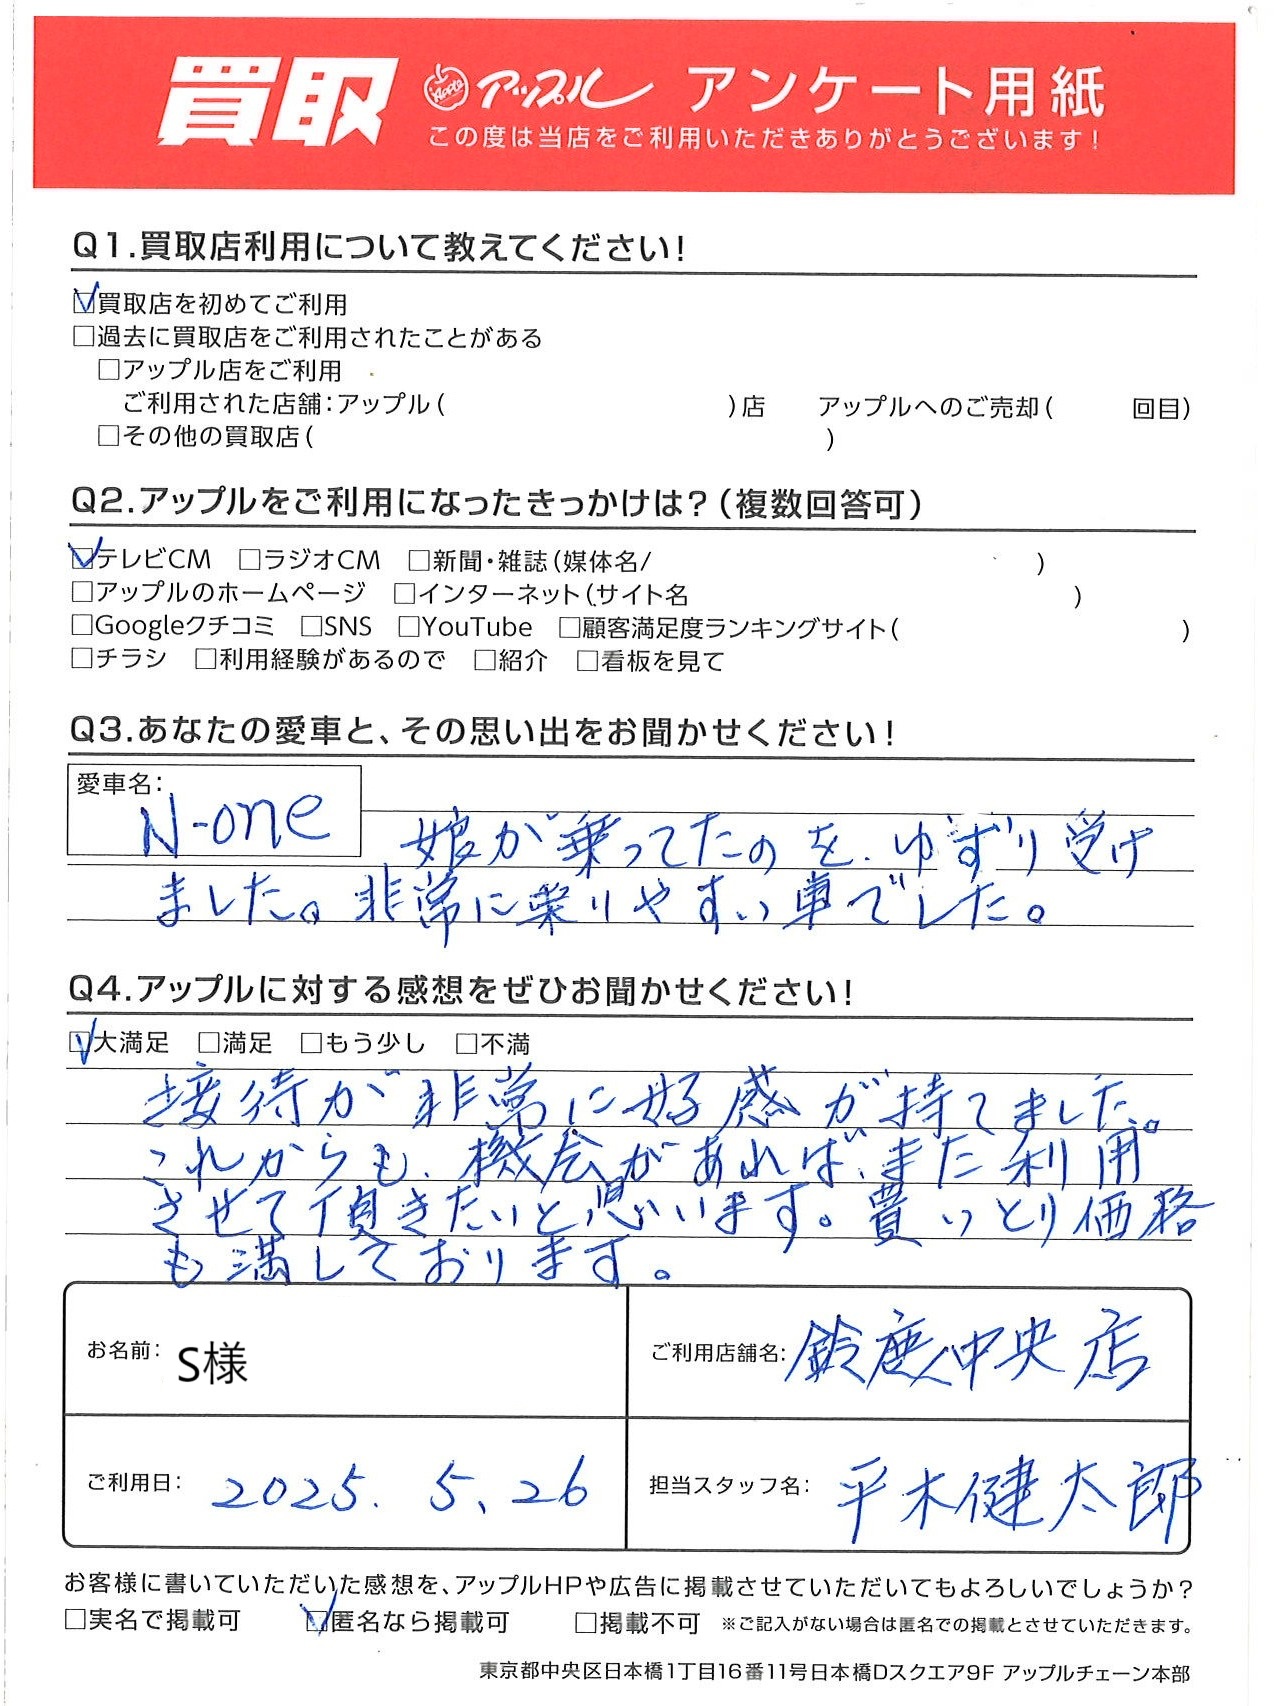 買取 Apple アップル アンケート用紙
この度は当店をご利用いただきありがとうございます!
Q1.買取店利用について教えてください!
☑買取店を初めてご利用
□過去に買取店をご利用されたことがある
□アップル店をご利用
ご利用された店舗:アップル( )店 アップルへのご売却( 回目)
□その他の買取店( )
Q2.アップルをご利用になったきっかけは?(複数回答可)
☑テレビCM □ラジオCM □新聞・雑誌(媒体名/ )
□アップルのホームページ □インターネット(サイト名 )
□Googleクチコミ □SNS □YouTube □顧客満足度ランキングサイト( )
□チラシ □利用経験があるので □紹介 □看板を見て
Q3.あなたの愛車と、その思い出をお聞かせください!
愛車名:
N-one 娘が乗ってたのを、ゆずり受け
ました。非常に乗りやすい車でした。
Q4.アップルに対する感想をぜひお聞かせください!
☑大満足 □満足 □もう少し □不満
接待が非常に好感が持てました。
これからも、機会があれば、また利用
させて頂きたいと思います。買いとり価格
も満しております。
お名前: S様 ご利用店舗名: 鈴鹿中央店
ご利用日: 2025. 5、26 担当スタッフ名: 平木健太郎
お客様に書いていただいた感想を、アップルHPや広告に掲載させていただいてもよろしいでしょうか?
□実名で掲載可 ☑匿名なら掲載可 □掲載不可 ※ご記入がない場合は匿名での掲載とさせていただきます。
東京都中央区日本橋1丁目16番11号日本橋Dスクエア9F アップルチェーン本部